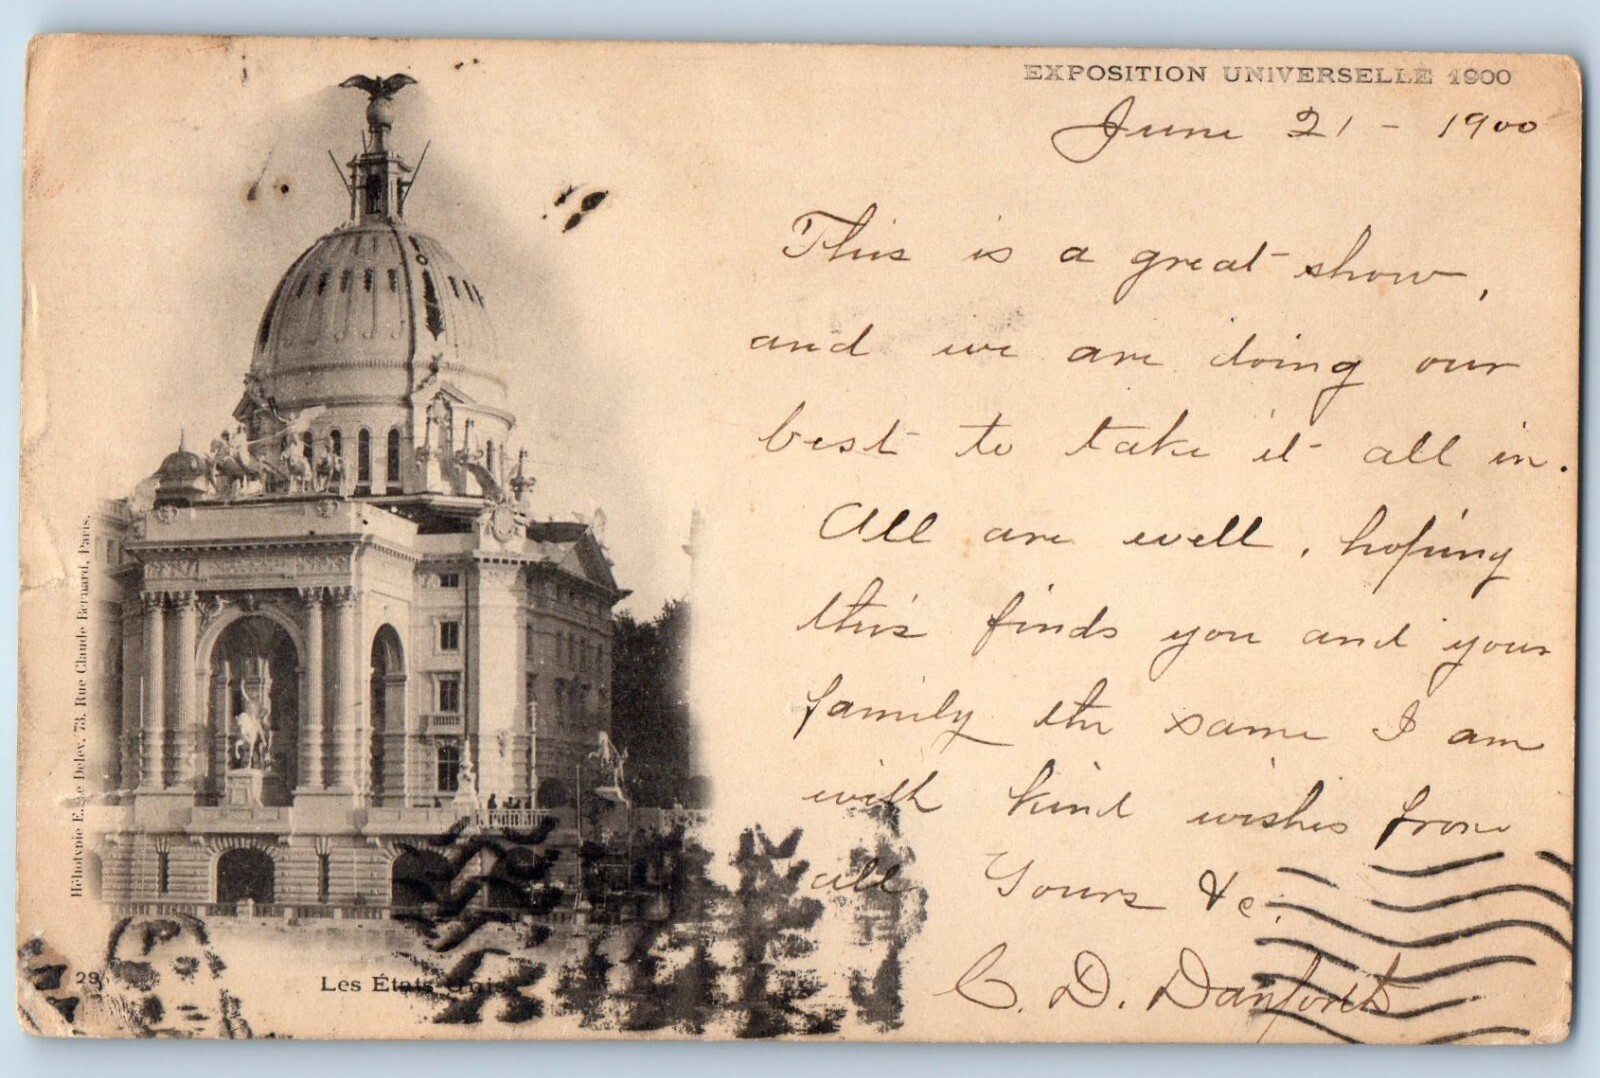 EXPOSITION UNIVERSELLE 1900
June 21 - 1900
This is a great show,
and we are doing our
best to take it all in.
All are well, hoping
this finds you and your
family the same I am
with kind wishes from
all Yours &c.
C. D. Danforth
Héliotypie E. Le Deley, 73, Rue Claude Bernard, Paris.
29
Les États Unis